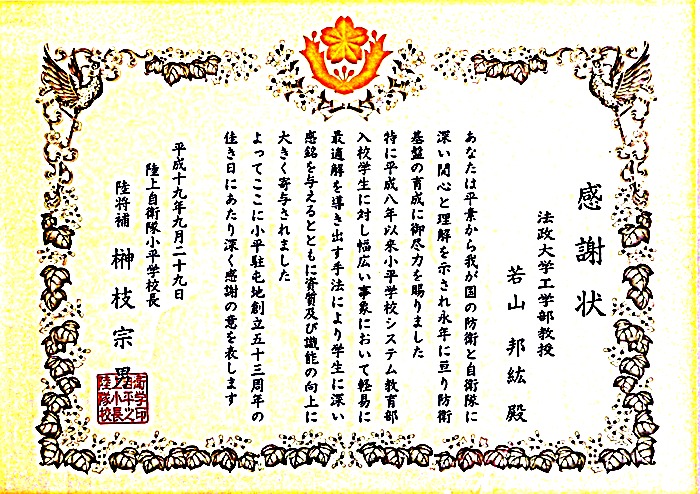 感謝状
法政大学工学部教授
若山邦紘殿
あなたは平素から我が国の防衛と自衛隊に
深い関心と理解を示され永年に亘り防衛
基盤の育成に御尽力を賜りました
特に平成八年以来小平学校システム教育部
入校学生に対し幅広い事象において軽易に
最適解を導き出す手法により学生に深い
感銘を与えるとともに資質及び識能の向上に
大きく寄与されました
よってここに小平駐屯地創立五十三周年の
佳き日にあたり深く感謝の意を表します
平成十九年九月二十九日
陸上自衛隊小平学校長
陸将補 榊枝宗男
衛学印
上自小平之
陸隊校長